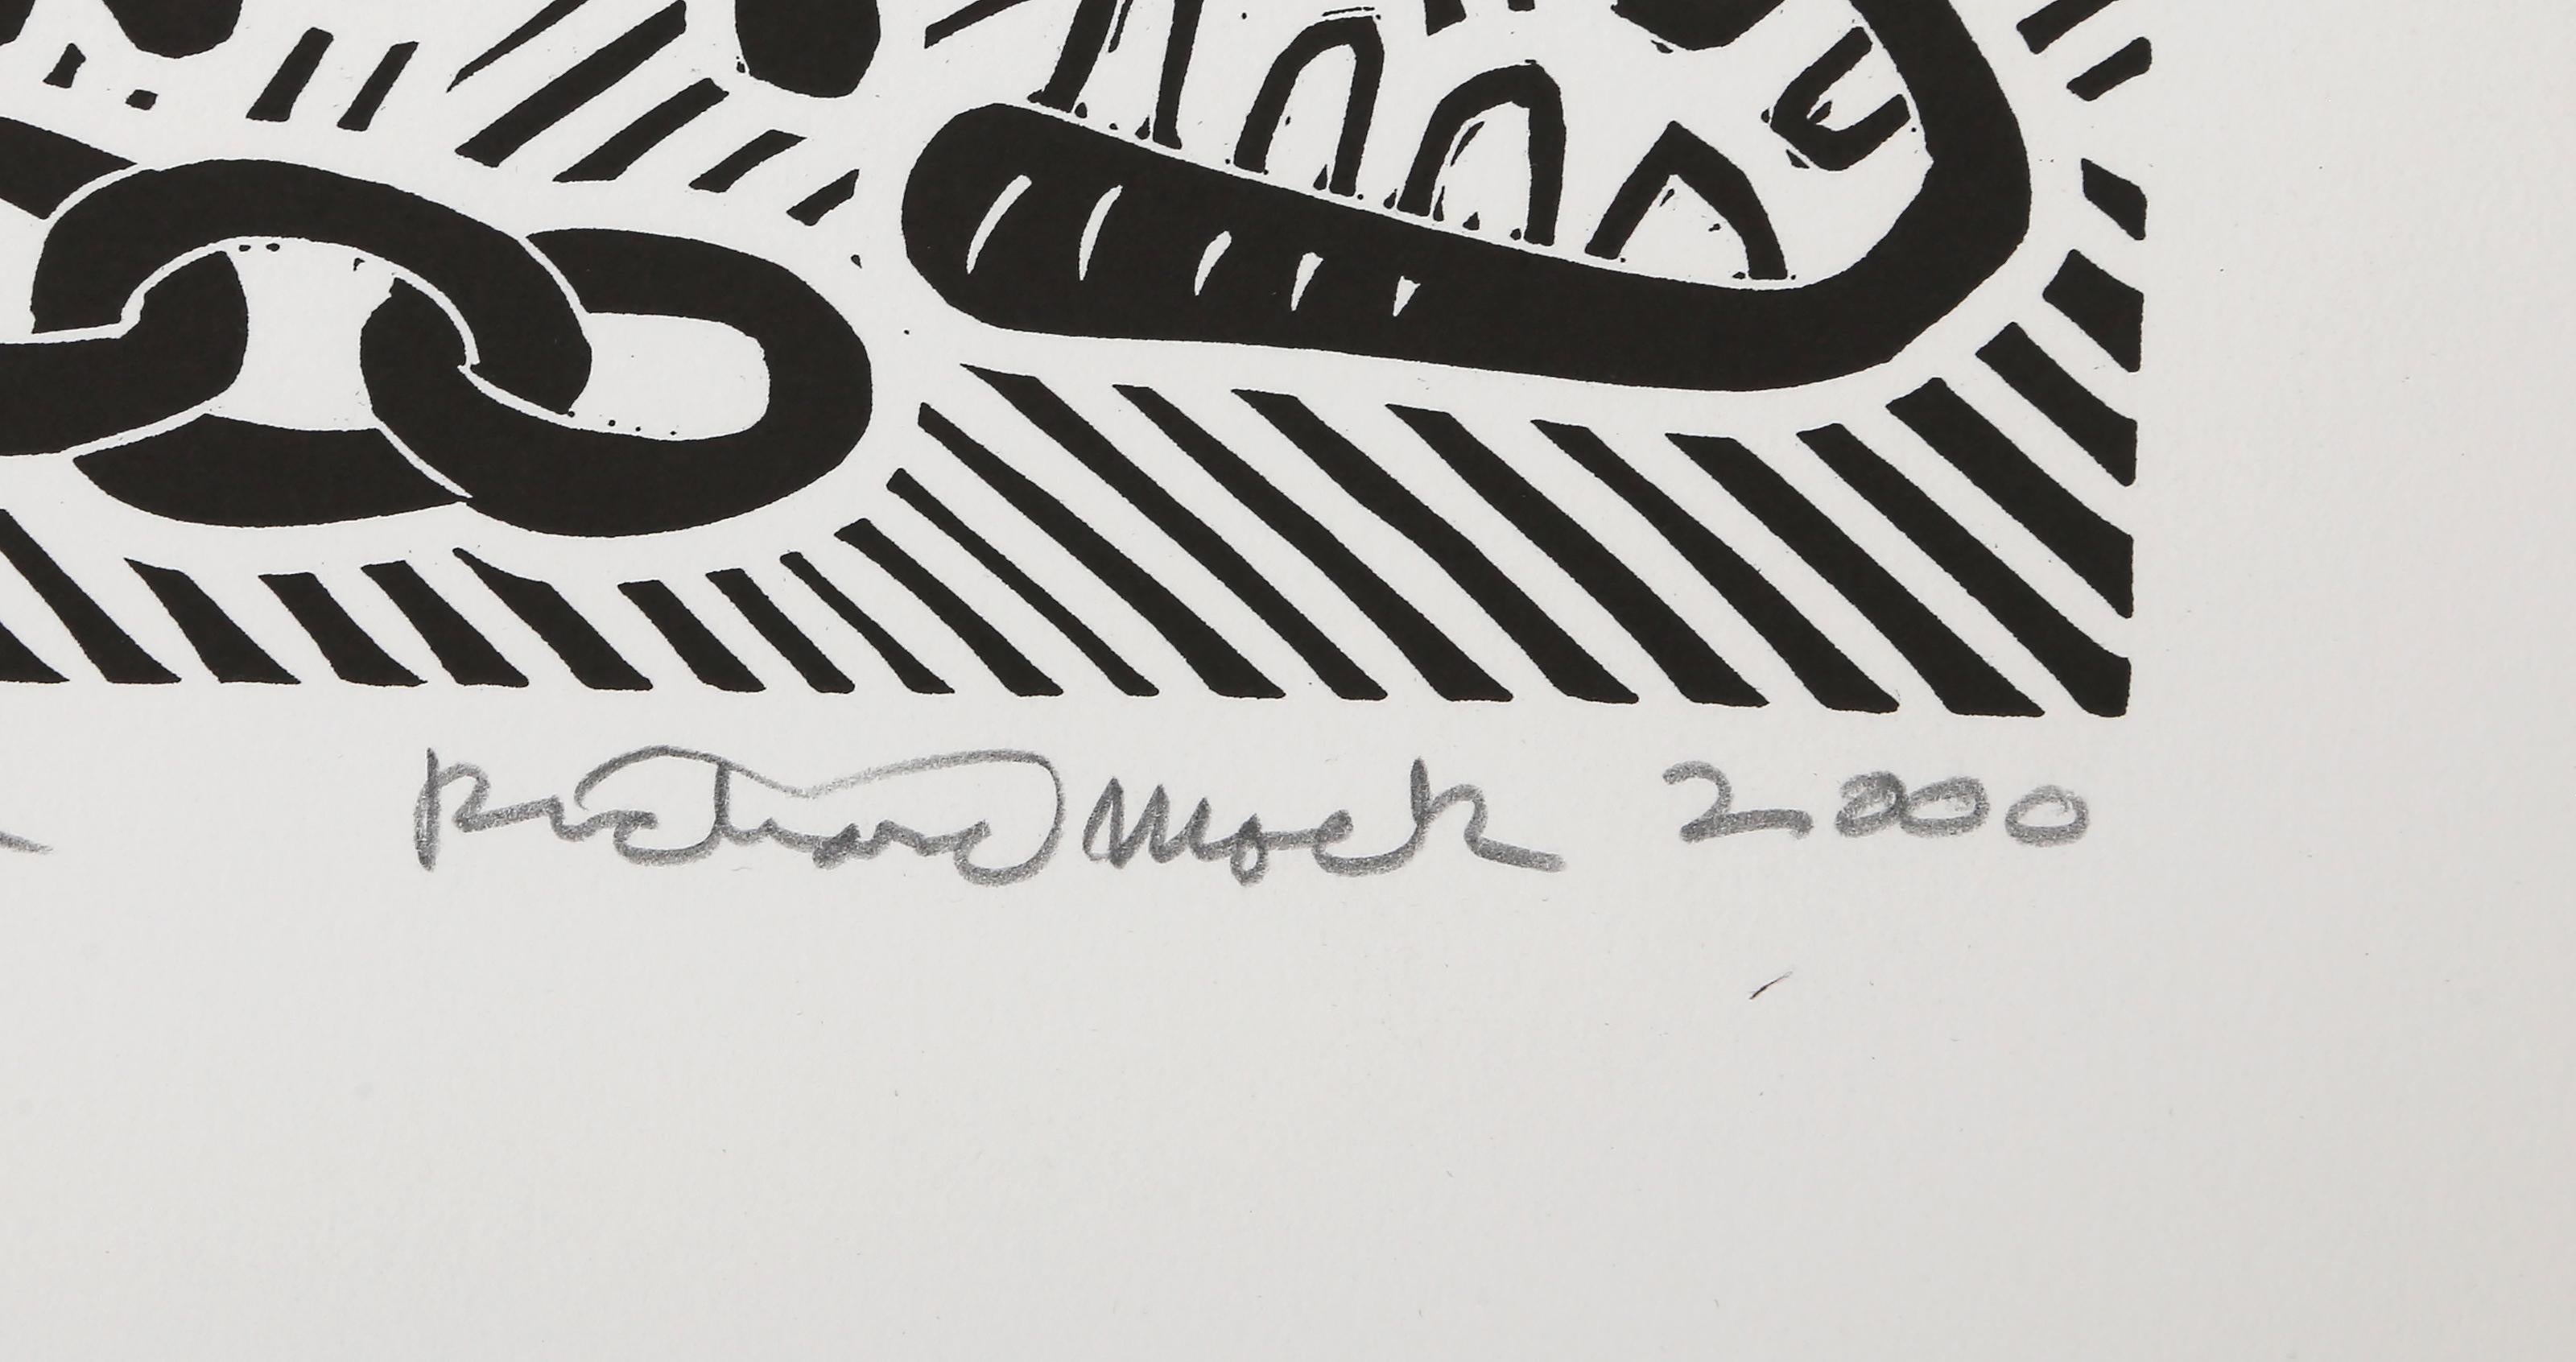 Richard Mock 2000